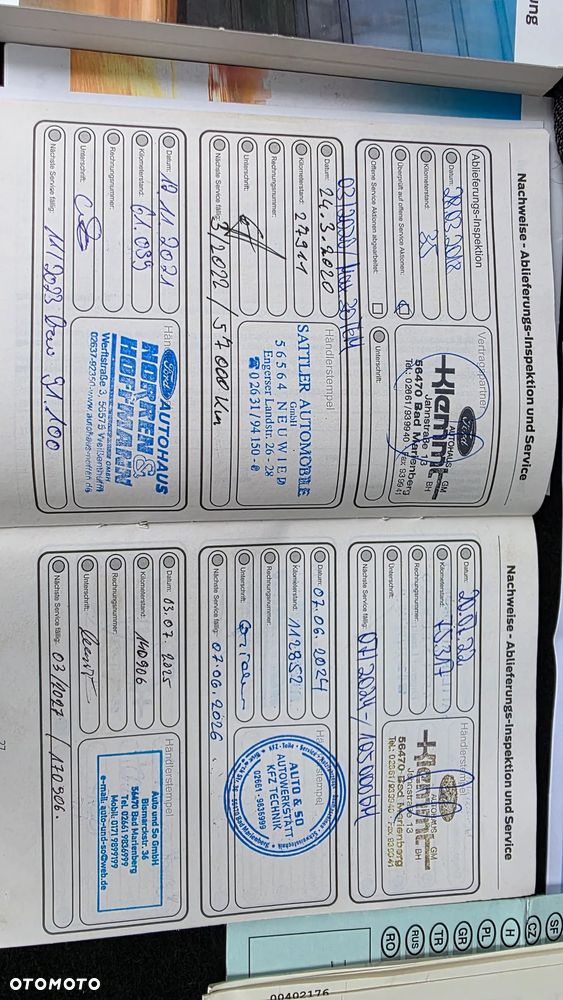 ung
Nachweise - Ablieferungs-Inspektion und Service
Ablieferungs-Inspektion
Datum: 28.03.2018
Kilometerstand: 35
Überprüft auf offene Service Aktionen:
Offene Service Aktionen abgearbeitet:
Vertragspartner
Ford
AUTOHAUS
Klemmt
GM
BH
Jahnstraße 13
56470 Bad Marienberg
Tel. 02661/939940 · Fax 939941
Unterschrift:
Datum: 24.3.2020
Kilometerstand: 27911
Rechnungsnummer:
Unterschrift:
Nächste Service fällig: 3/2022 / 57000 km
Händlerstempel
SATTLER AUTOMOBILE
GmbH
56564 NEUWIED
Engerser Landstr. 26 - 28
☎ 02631/94150-0
Datum: 19.11.2021
Kilometerstand: 61.099
Rechnungsnummer:
Unterschrift:
Nächste Service fällig: 11/2023 91.100
Ford AUTOHAUS
NORREN &
HOFFMANN
Werftstraße 3, 56575 Weißenthurm
Nachweise - Ablieferungs-Inspektion und Service
Kilometerstand: 75317
Rechnungsnummer:
Unterschrift:
Nächste Service fällig: 07/2024 - 105000KM
Händlerstempel
Klemmt
GM
BH
Jahnstraße 13
56470 Bad Marienberg
Tel. 02661/939940 · Fax 939941
Datum: 07.06.2024
Kilometerstand: 112852
Rechnungsnummer:
Unterschrift:
Nächste Service fällig: 07.06.2026
Händlerstempel
AUTO & SO
AUTOWERKSTATT
KFZ TECHNIK
02661 - 9836999
Datum: 03.07.2025
Kilometerstand: 140906
Rechnungsnummer:
Unterschrift:
Nächste Service fällig: 03/2027 / 170906.
Händlerstempel
Auto und So GmbH
Bismarckstr. 36
56470 Bad Marienberg
Tel. 02661 9836999
Mobil: 0171 9899199
e-mail: auto-und-so@web.de
27
SF
CZ
H
PL
GR
TR
RUS
RO
00402176
OTOMOTO